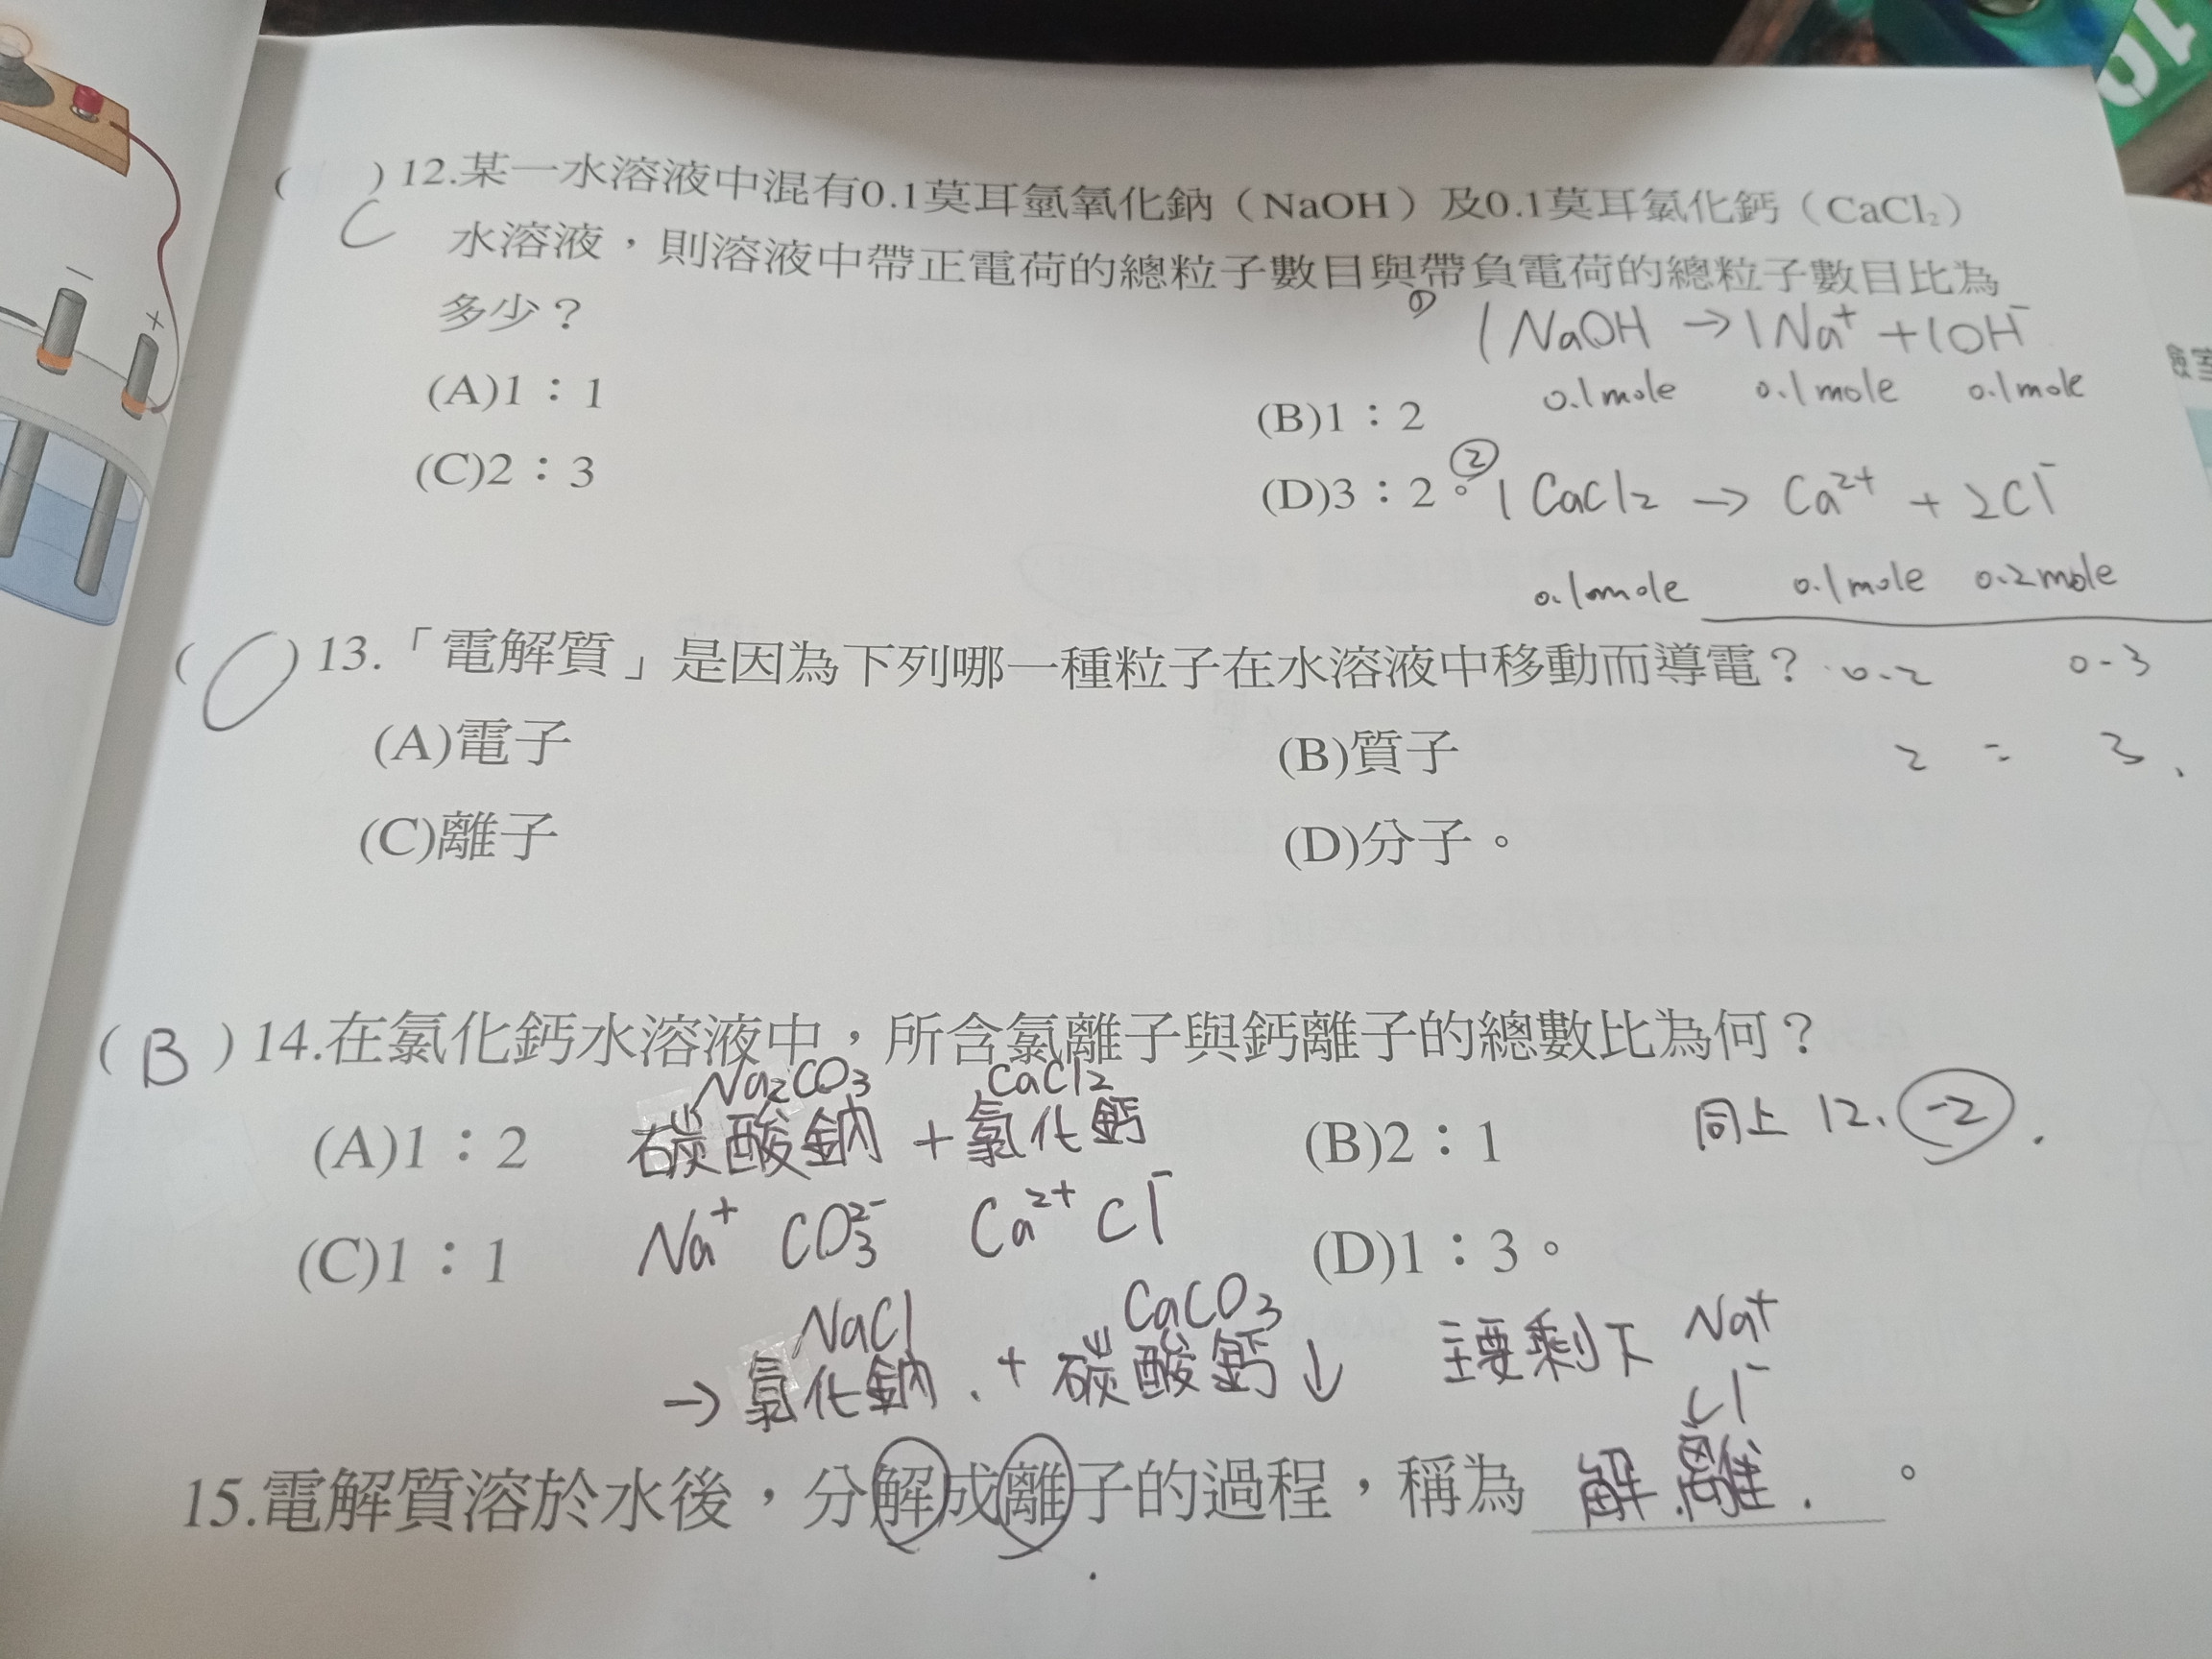 ( C )12.某一水溶液中混有0.1莫耳氫氧化鈉（NaOH）及0.1莫耳氯化鈣（CaCl₂）
水溶液，則溶液中帶正電荷的總粒子數目與帶負電荷的總粒子數目比為
多少？
① 1NaOH → 1Na⁺ + 1OH⁻
0.1mole 0.1mole 0.1mole
(A)1：1
(B)1：2
(C)2：3
(D)3：2。
② 1CaCl2 → Ca²⁺ + 2Cl⁻
0.1mole 0.1mole 0.2mole
0.2 0.3
2 : 3
( C )13.「電解質」是因為下列哪一種粒子在水溶液中移動而導電？
(A)電子
(B)質子
(C)離子
(D)分子。
( B )14.在氯化鈣水溶液中，所含氯離子與鈣離子的總數比為何？
(A)1：2
(B)2：1
同上 12. -2.
(C)1：1
(D)1：3。
Na₂CO₃ CaCl₂
碳酸鈉 + 氯化鈣
Na⁺ CO₃²⁻ Ca²⁺ Cl⁻
NaCl CaCO₃
→ 氯化鈉. + 碳酸鈣↓ 主要剩下 Na⁺
Cl⁻
15.電解質溶於水後，分解成離子的過程，稱為 解.離. 。
－
+
10